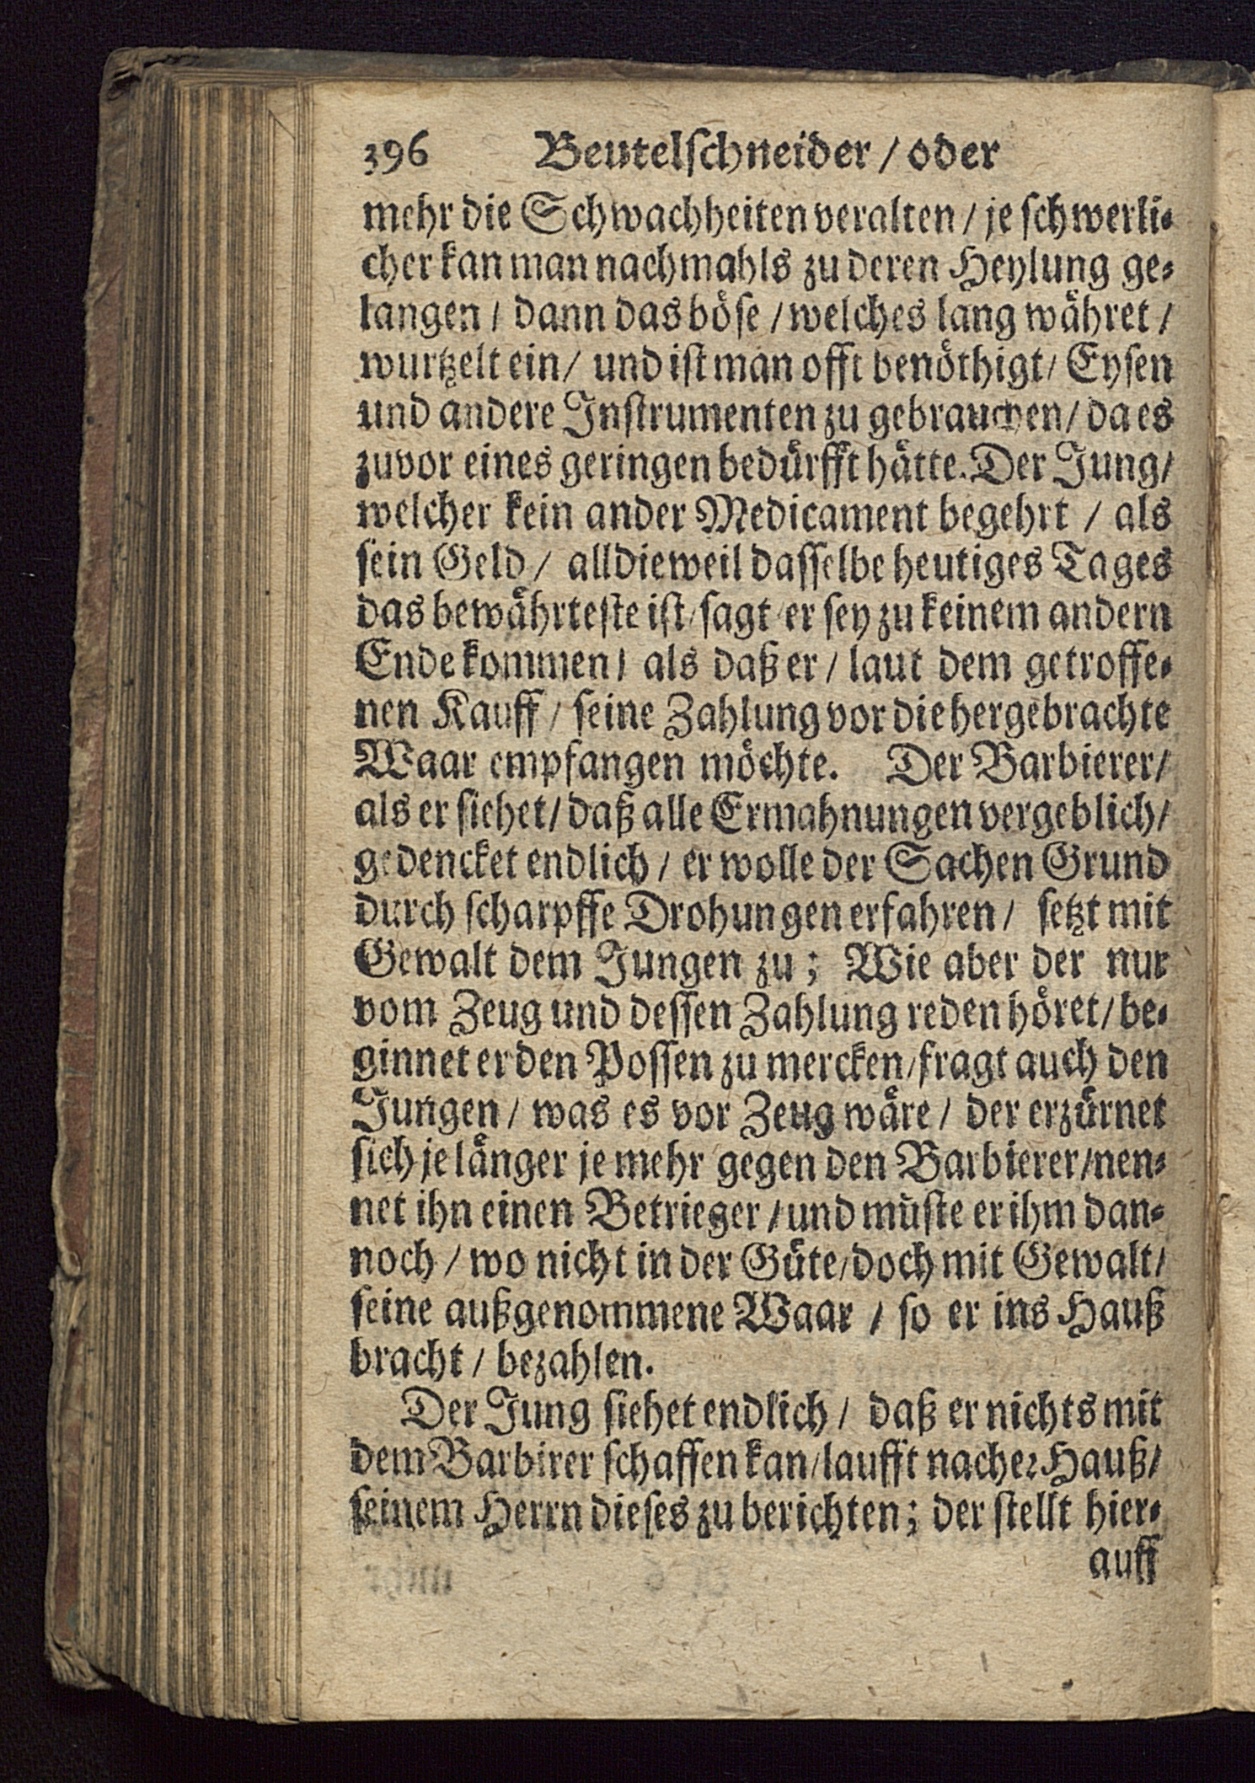 396 Beutelschneider / oder
mehr die Schwachheiten veralten / je schwerli-
cher kan man nachmahls zu deren Heylung ge-
langen / dann das böse / welches lang währet /
wurtzelt ein / und ist man offt benöthigt / Eysen
und andere Instrumenten zu gebrauchen / da es
zuvor eines geringen bedürfft hätte. Der Jung /
welcher kein ander Medicament begehrt / als
sein Geld / alldieweil dasselbe heutiges Tages
das bewährteste ist / sagt er sey zu keinem andern
Ende kommen / als daß er / laut dem getroffe-
nen Kauff / seine Zahlung vor die hergebrachte
Waar empfangen möchte. Der Barbierer /
als er siehet / daß alle Ermahnungen vergeblich /
gedencket endlich / er wolle der Sachen Grund
durch scharpffe Drohungen erfahren / setzt mit
Gewalt dem Jungen zu ; Wie aber der nur
vom Zeug und dessen Zahlung reden höret / be-
ginnet er den Possen zu mercken / fragt auch den
Jungen / was es vor Zeug wäre / der erzürnet
sich je länger je mehr gegen den Barbierer / nen-
net ihn einen Betrieger / und müste er ihm dan-
noch / wo nicht in der Güte / doch mit Gewalt /
seine außgenommene Waar / so er ins Hauß
bracht / bezahlen.
Der Jung siehet endlich / daß er nichts mit
dem Barbirer schaffen kan / laufft nacher Hauß /
seinem Herrn dieses zu berichten ; der stellt hier-
auff